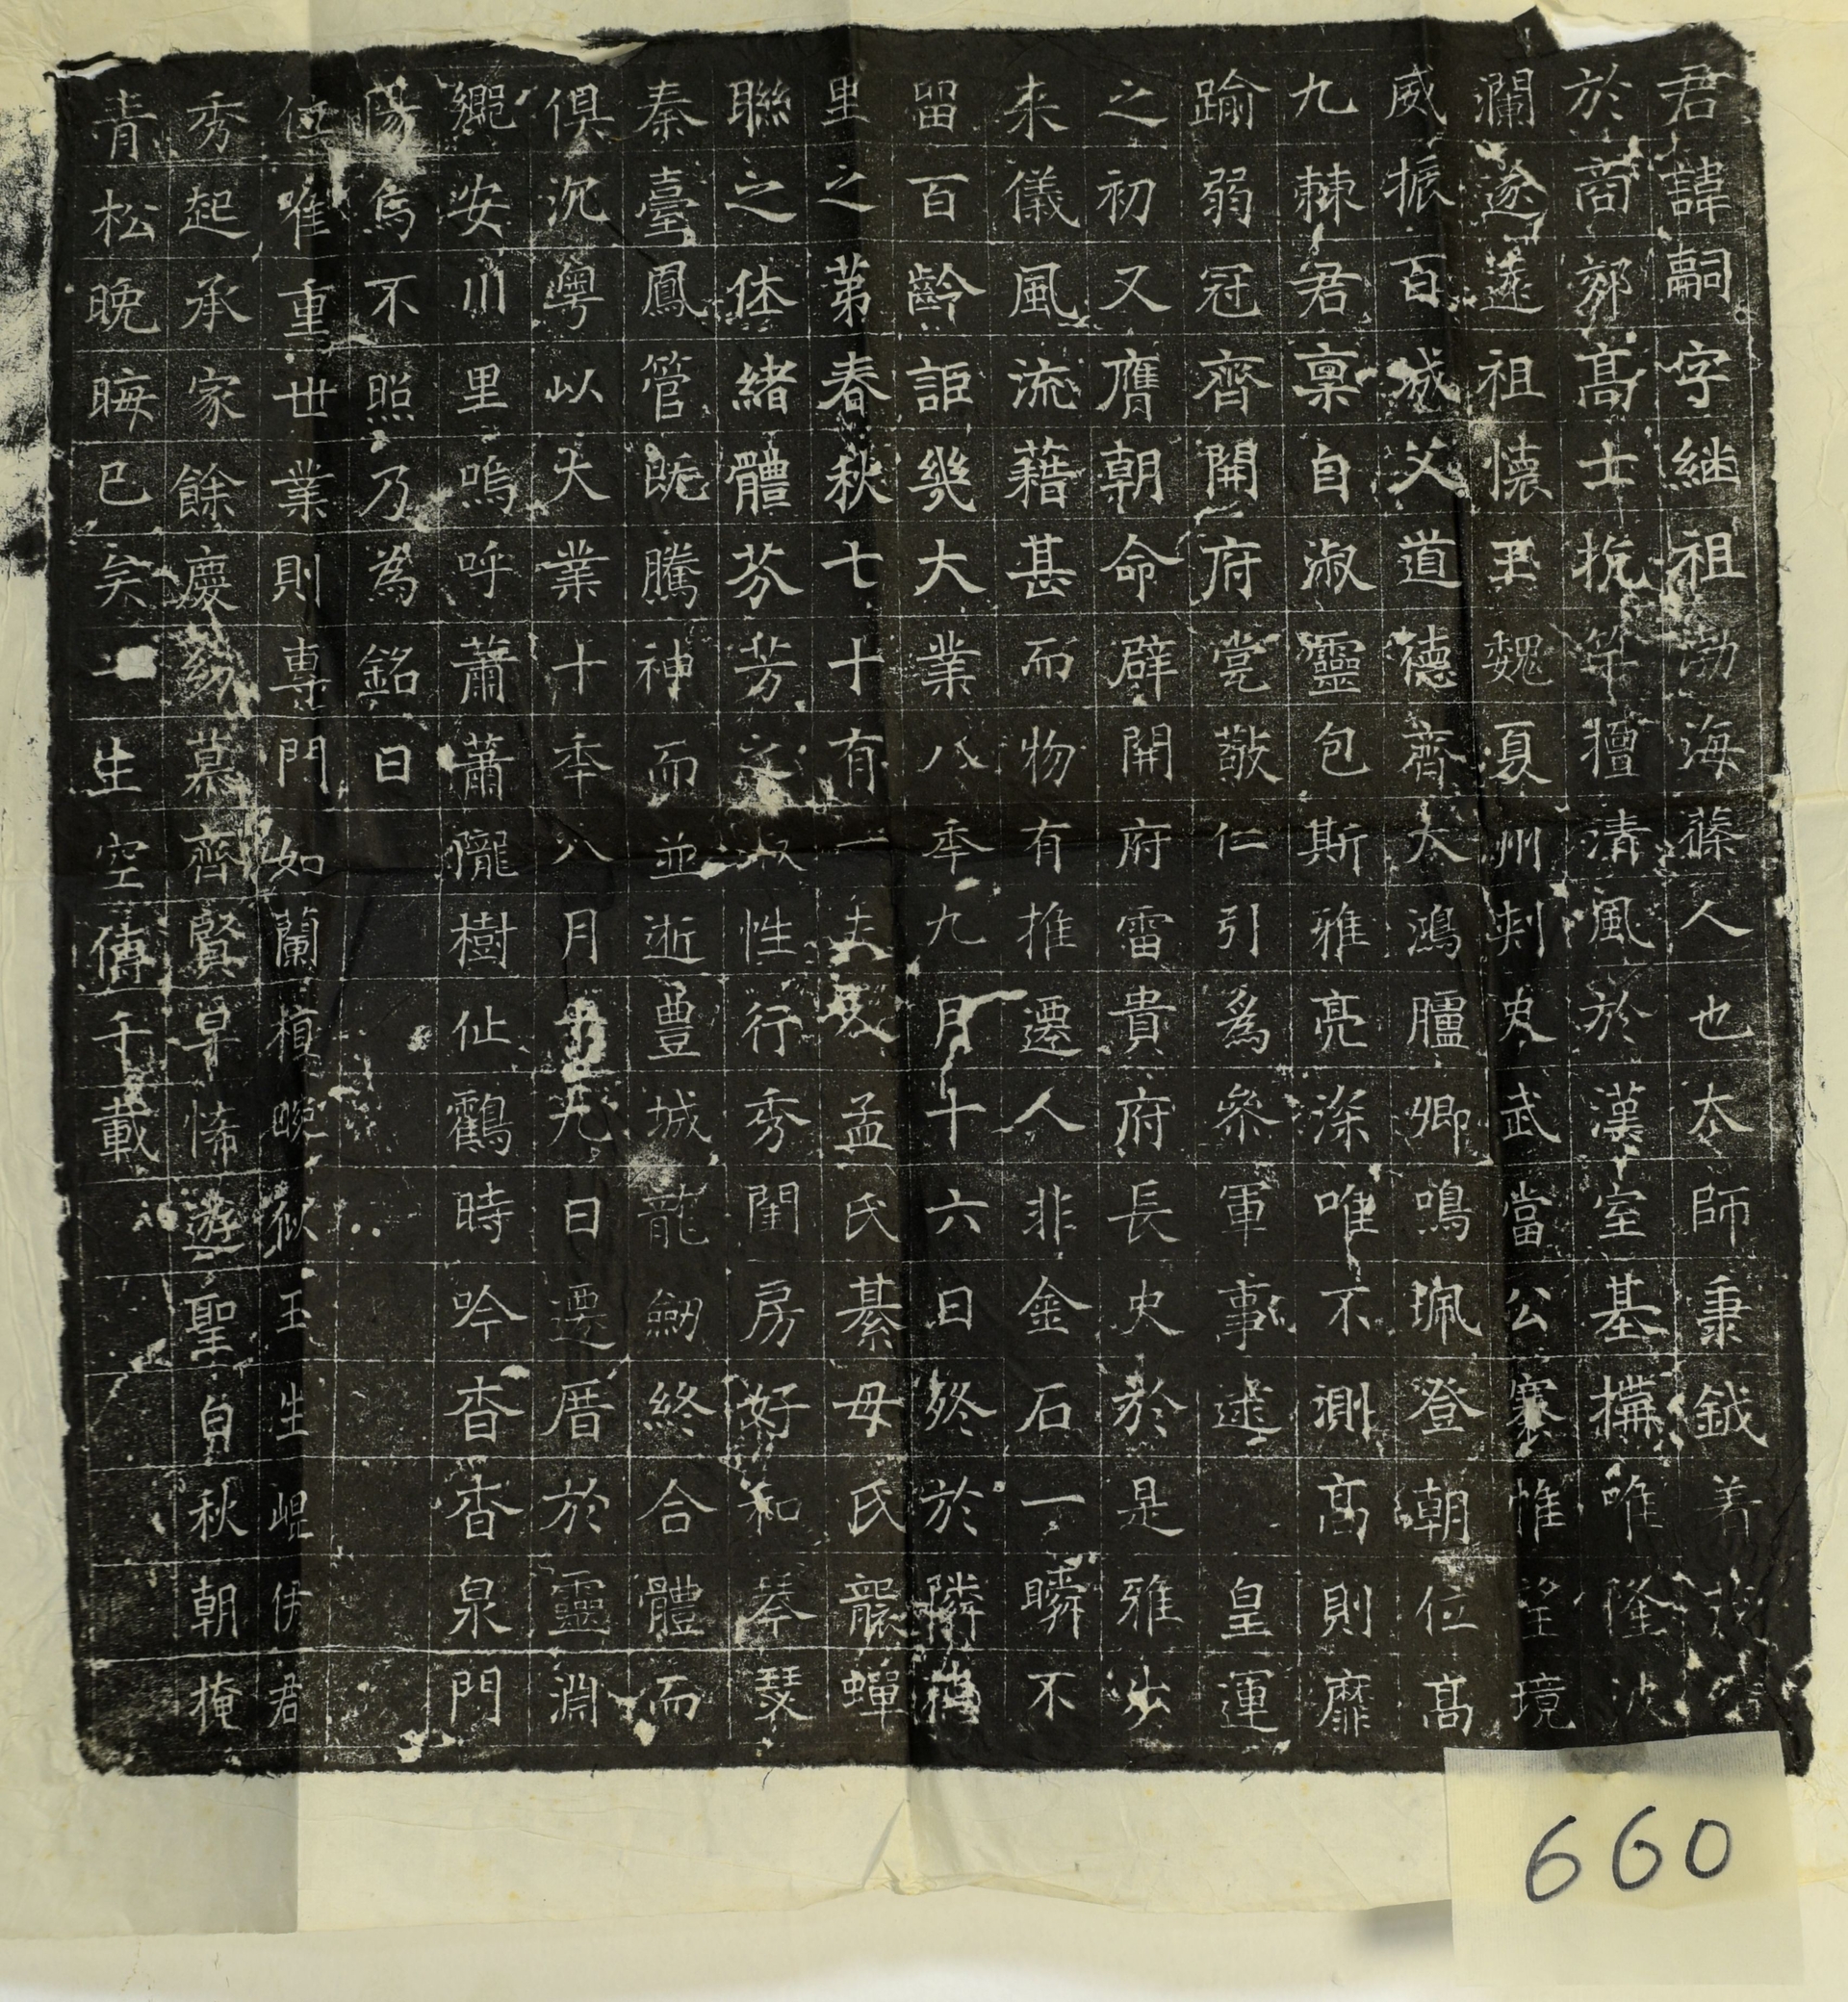 君諱嗣字継祖渤海蓨人也太師秉鉞著茂
於啇郊髙士抗竿擅清風於漢室基構唯隆波
瀾遂遠祖懷玉魏夏州刾史武當公褰惟望境
威振百城父道德齊大鴻臚卿鳴珮登朝位髙
九棘君稟自淑靈包斯雅亮深唯不測高則靡
踰弱冠齊開府党敬仁引為叅軍事逮皇運
之初又膺朝命辟開府雷貴府長史於是雅步
来儀風流藉甚而物有推遷人非金石一瞬不
留百齡詎幾大業八秊九月十六日終於隣德
里之苐春秋七十有一夫人孟氏綦毋氏並蟬
聯之休緒體芬芳之淑性行秀閨房好和琴瑟
秦臺鳳管旣騰神而並逝豊城龍劒終合體而
俱沉粤以大業十秊八月十九日遷厝於靈淵
鄉安川里嗚呼蕭蕭隴樹佌鸖時吟杳杳泉門
陽烏不照乃為銘曰
但唯重世業則專門如蘭植畹似玉生崐伊君
秀起承家餘慶幼慕齊賢早悕遊聖白秋朝掩
青松晚晦已矣一生空傳千載
660